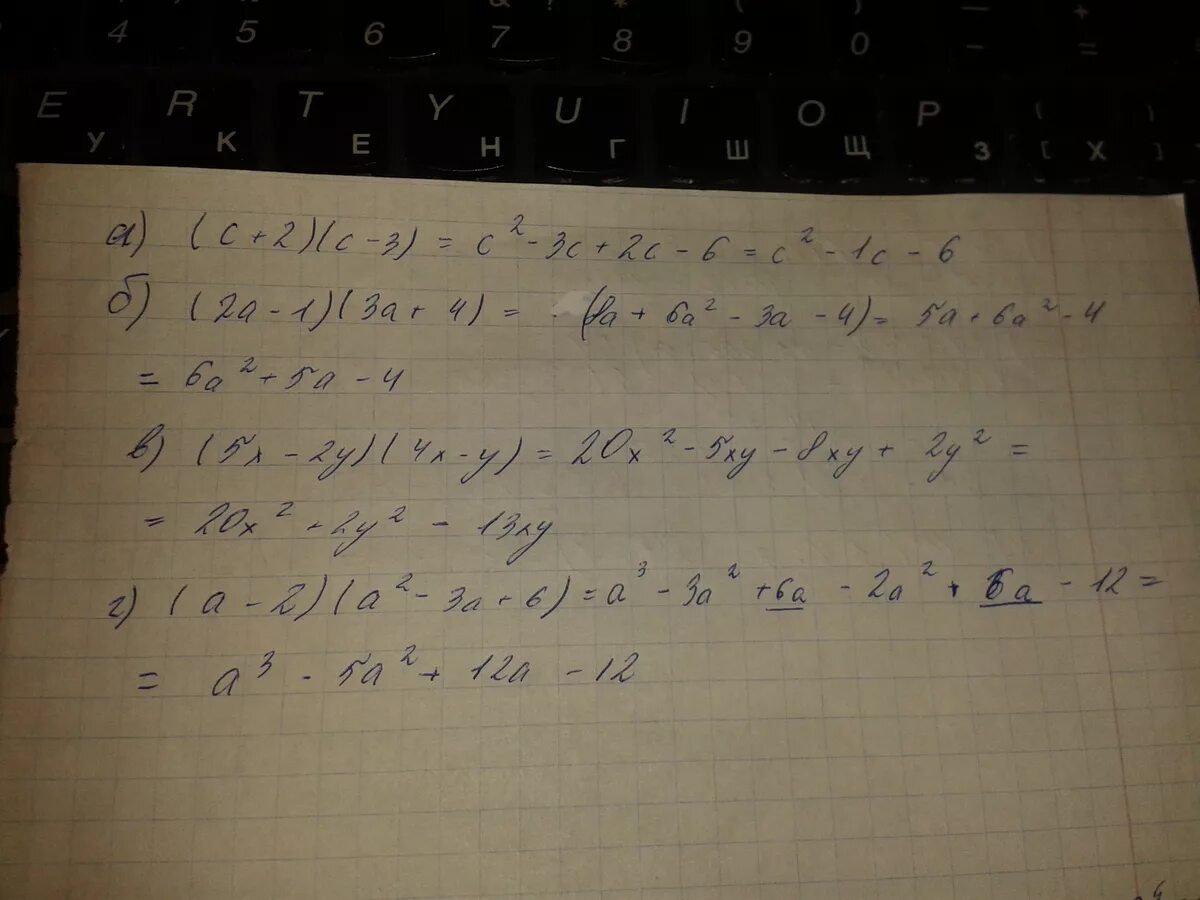 4 5 6 & 7 * 8 ( 9 ) 0 — - + =
E У R К T Е Y Н U Г I Ш O Щ P З { [ Х } ]
а) (c+2)(c-3) = c² - 3c + 2c - 6 = c² - 1c - 6
б) (2a-1)(3a+4) = (8a + 6a² - 3a - 4) = 5a + 6a² - 4
= 6a² + 5a - 4
в) (5x - 2y)(4x - y) = 20x² - 5xy - 8xy + 2y² =
= 20x² + 2y² - 13xy
г) (a - 2)(a² - 3a + 6) = a³ - 3a² + 6a - 2a² + 6a - 12 =
= a³ - 5a² + 12a - 12